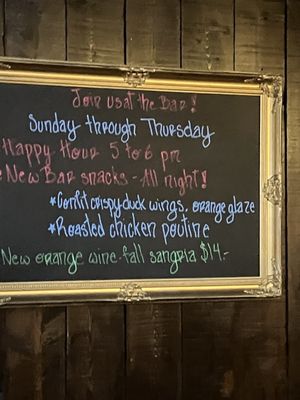 Join us at the Bar!
Sunday through Thursday
Happy Hour 5 to 6 pm
New Bar snacks - All night!
*Confit crispy duck wings, orange glaze
*Roasted chicken poutine
New orange wine - fall sangria $14.-